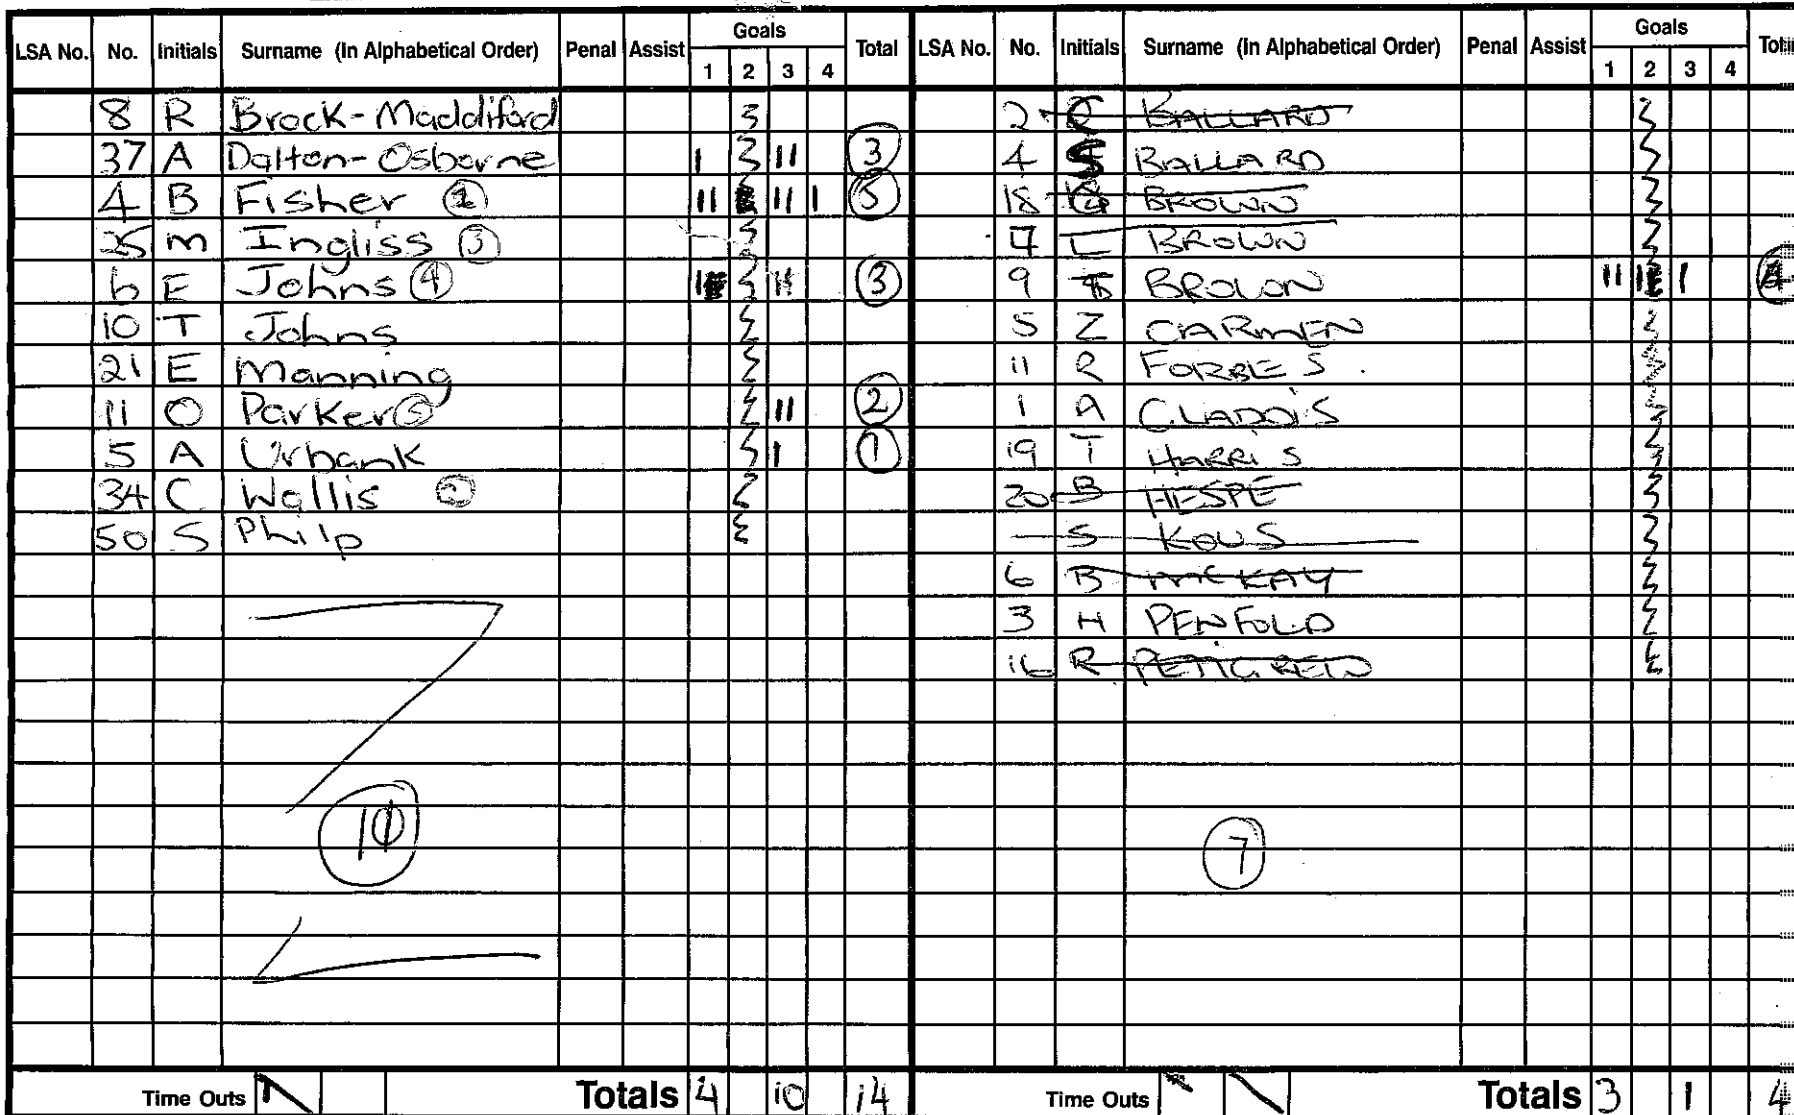 LSA No. No. Initials Surname (In Alphabetical Order) Penal Assist Goals 1 2 3 4 Total
8 R Brock-Maddiford
37 A Dalton-Osborne 1 11 3
4 B Fisher 11 11 1 5
25 m Ingliss 3
6 E Johns 4 11 3
10 T Johns
21 E Manning
11 O Parker 11 2
5 A Urbank 1 1
34 C Wallis 2
50 S Philp
10
Time Outs Totals 4 10 14
LSA No. No. Initials Surname (In Alphabetical Order) Penal Assist Goals 1 2 3 4
2 BALLARD
4 BALLARD
18 BROWN
7 L BROWN
9 BROWN 11 1
5 Z CARMEN
11 R FORBES
1 A GLADDIS
19 T HARRIS
20 B HESPE
S KOUS
6 B McKAY
3 H PENFOLD
16 R PETTIGREW
7
Time Outs Totals 3 1 4